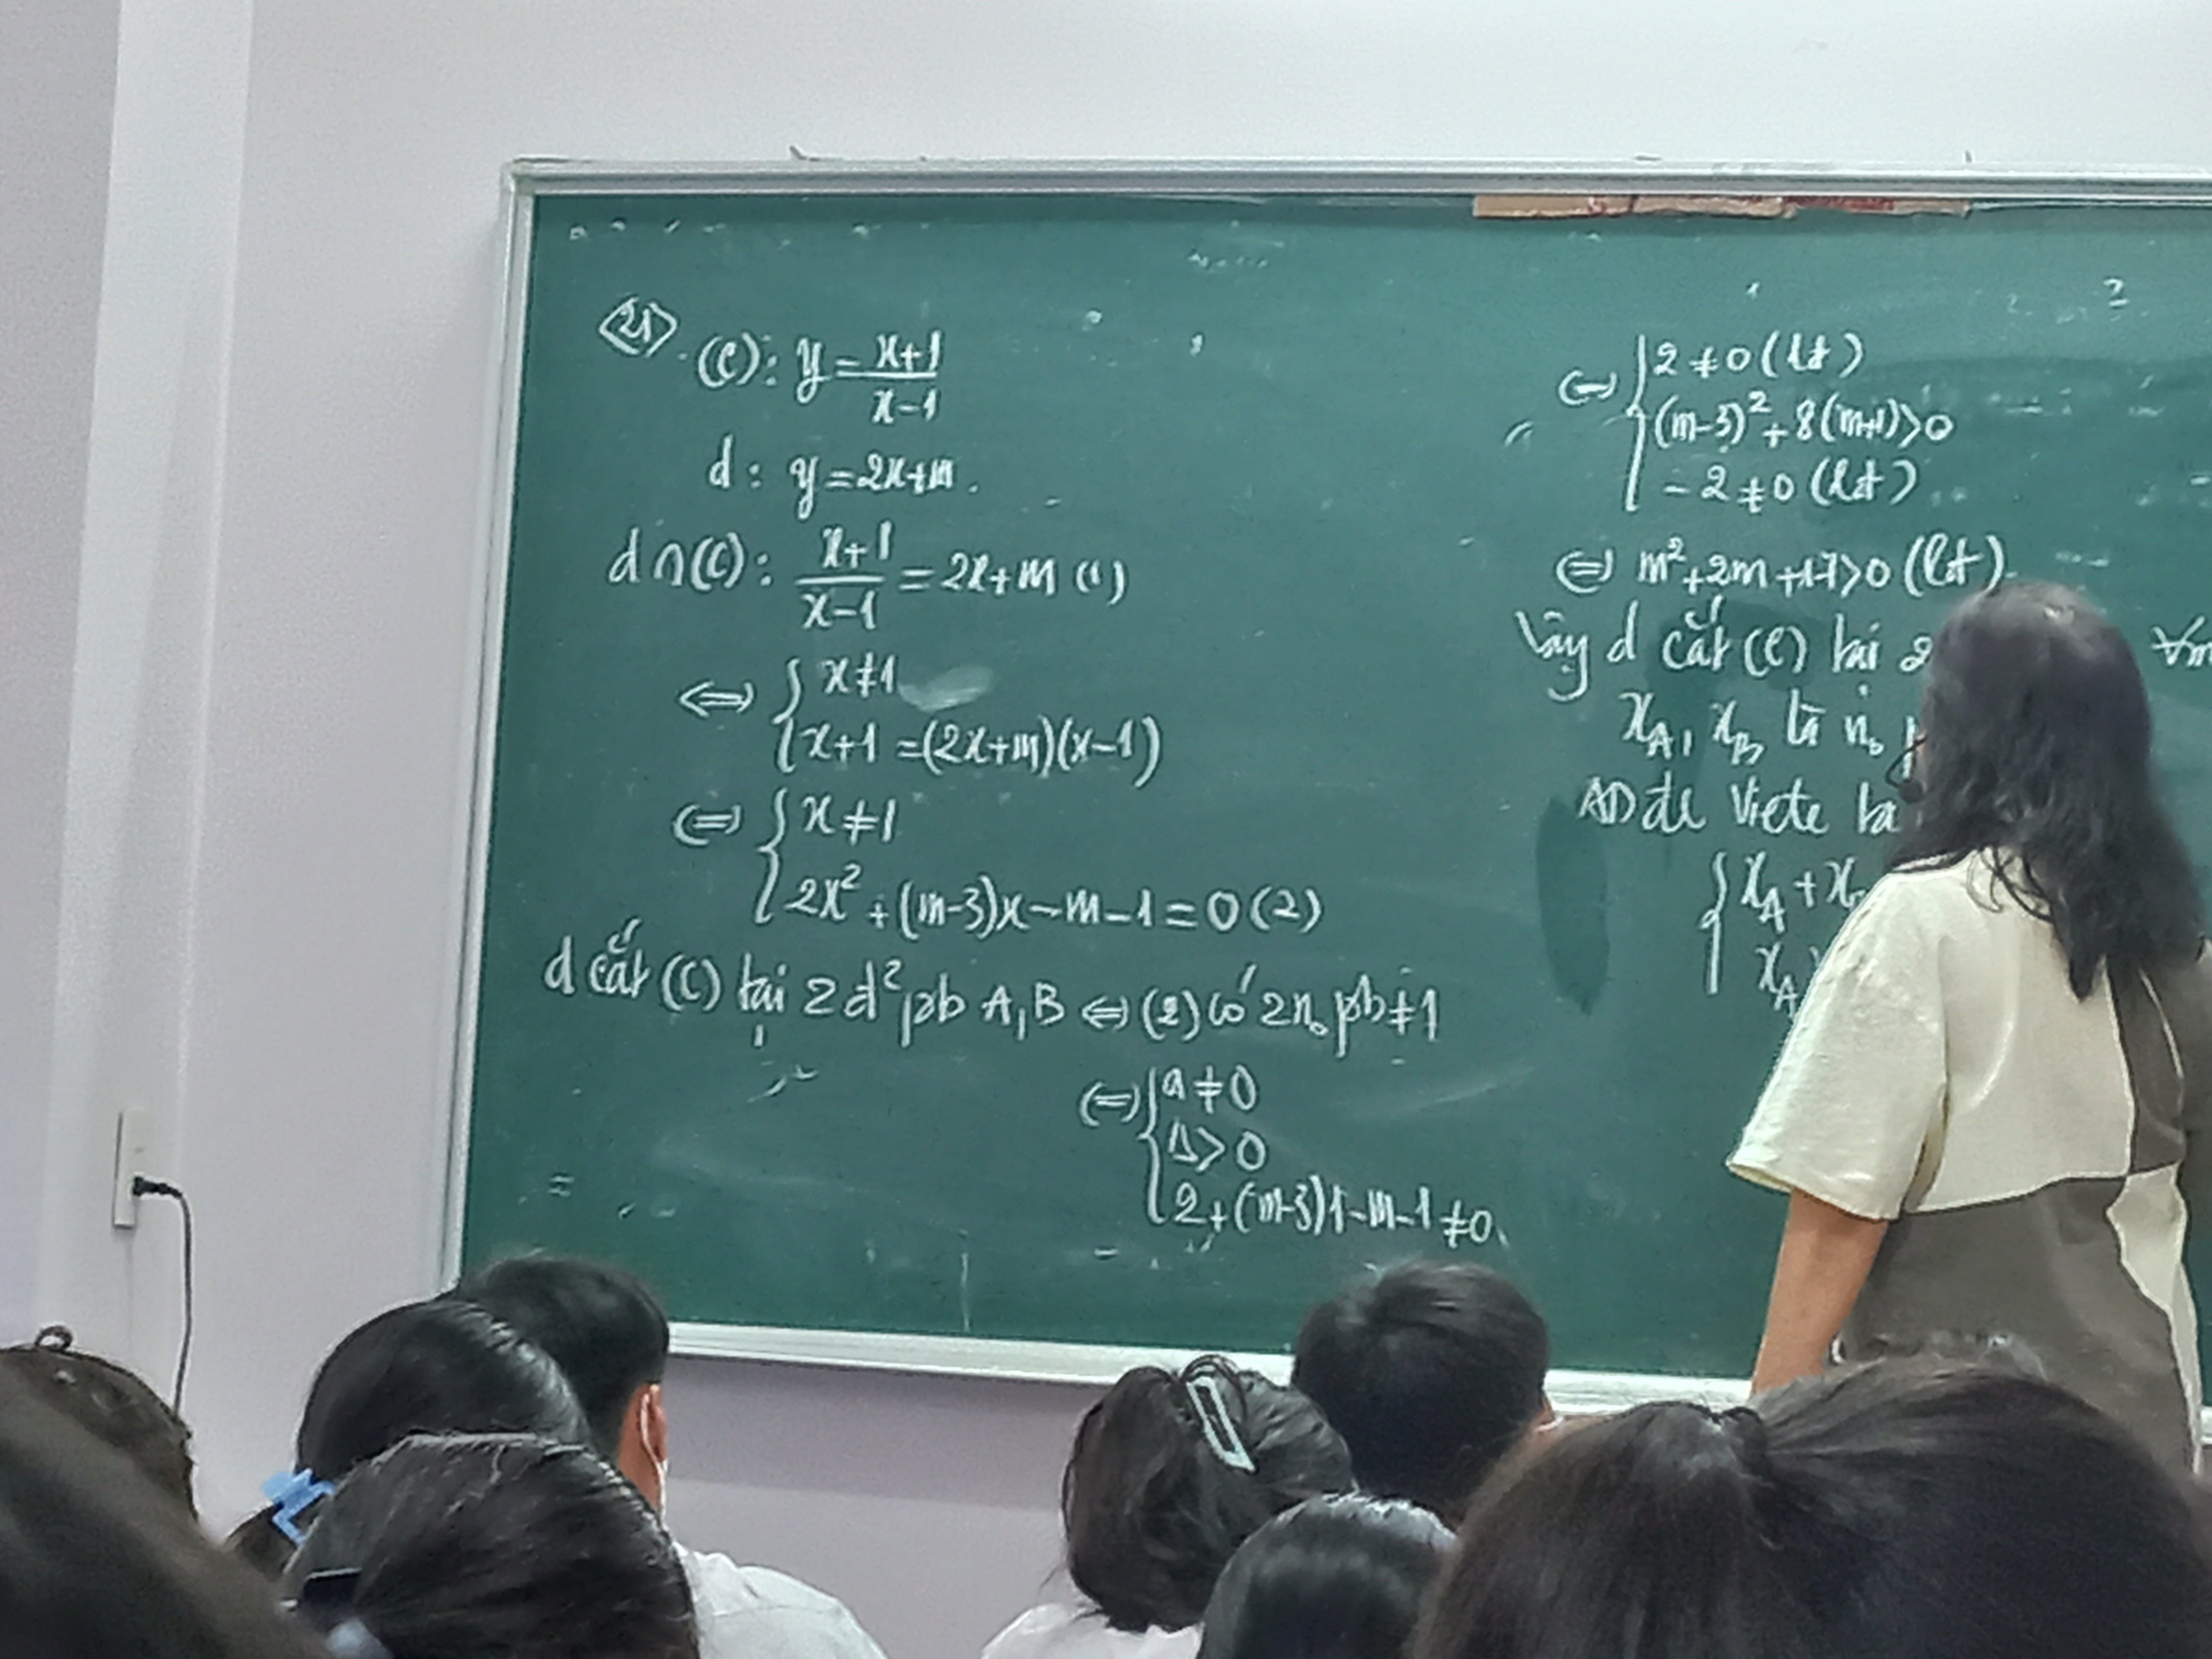 21. (C): y = \frac{x+1}{x-1}
d: y = 2x+m.
d ∩ (C): \frac{x+1}{x-1} = 2x+m (1)
⇔ { x ≠ 1
x+1 = (2x+m)(x-1)
⇔ { x ≠ 1
2x² + (m-3)x - m - 1 = 0 (2)
d cắt (C) tại 2 đ² pb A, B ⇔ (2) có 2 n₀ pb ≠ 1
⇔ { a ≠ 0
Δ > 0
2 + (m-3)1 - m - 1 ≠ 0
⇔ { 2 ≠ 0 (lđ)
(m-3)² + 8(m+1) > 0
-2 ≠ 0 (lđ)
⇔ m² + 2m + 17 > 0 (lđ).
Vậy d cắt (C) tại 2 ∀m
x_A, x_B là n₀
AD đl Viete ta
{ x_A + x
x_A